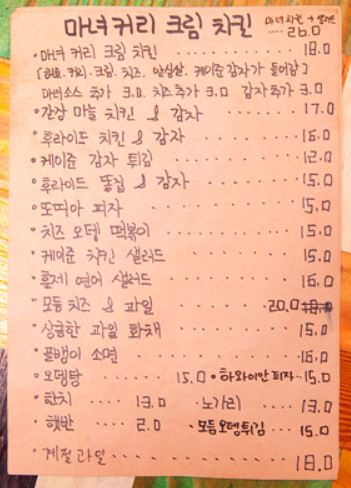 마녀커리 크림 치킨 마녀치킨 + 샐러드 .... 26.0
• 마녀 커리 크림 치킨 ........ 18.0
마녀소스 추가 3.0 치즈추가 3.0 감자추가 3.0
• 간장 마늘 치킨 & 감자 ...... 17.0
• 후라이드 치킨 & 감자 ........ 16.0
• 케이준 감자 튀김 .......... 12.0
• 후라이드 똥집 & 감자 ....... 15.0
• 또띠아 피자 ............ 15.0
• 치즈 오뎅 떡볶이 .......... 15.0
• 케이준 치킨 샐러드 ......... 15.0
• 훈제 연어 샐러드 .......... 16.0
• 모듬 치즈 & 과일 ........ 20.0 18.0
• 상큼한 과일 화채 .......... 15.0
• 골뱅이 소면 ............ 16.0
• 오뎅탕 ...... 15.0 • 하와이안 피자...15.0
• 한치 ...... 13.0 노가리 .... 13.0
• 햇반 ...... 2.0 모듬오뎅튀김 .... 15.0
• 계절과일 .............. 18.0